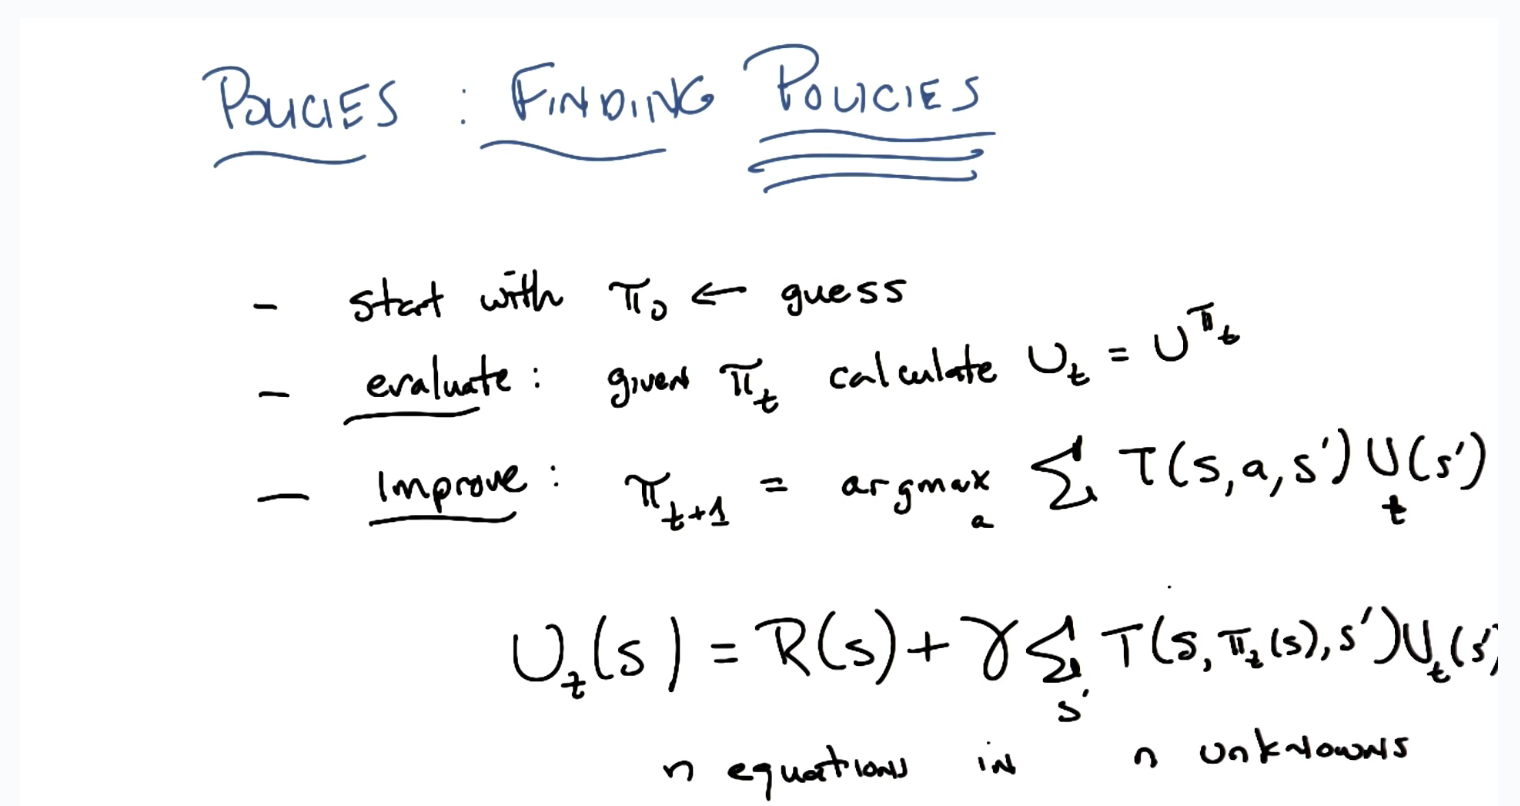 POLICIES : FINDING POLICIES
- start with π₀ ← guess
- evaluate: given πₜ calculate Uₜ = U^πₜ
- Improve: πₜ₊₁ = argmaxₐ Σ T(s,a,s')Uₜ(s')
Uₜ(s) = R(s) + γ Σ_s' T(s,πₜ(s),s')Uₜ(s'
n equations in n unknowns